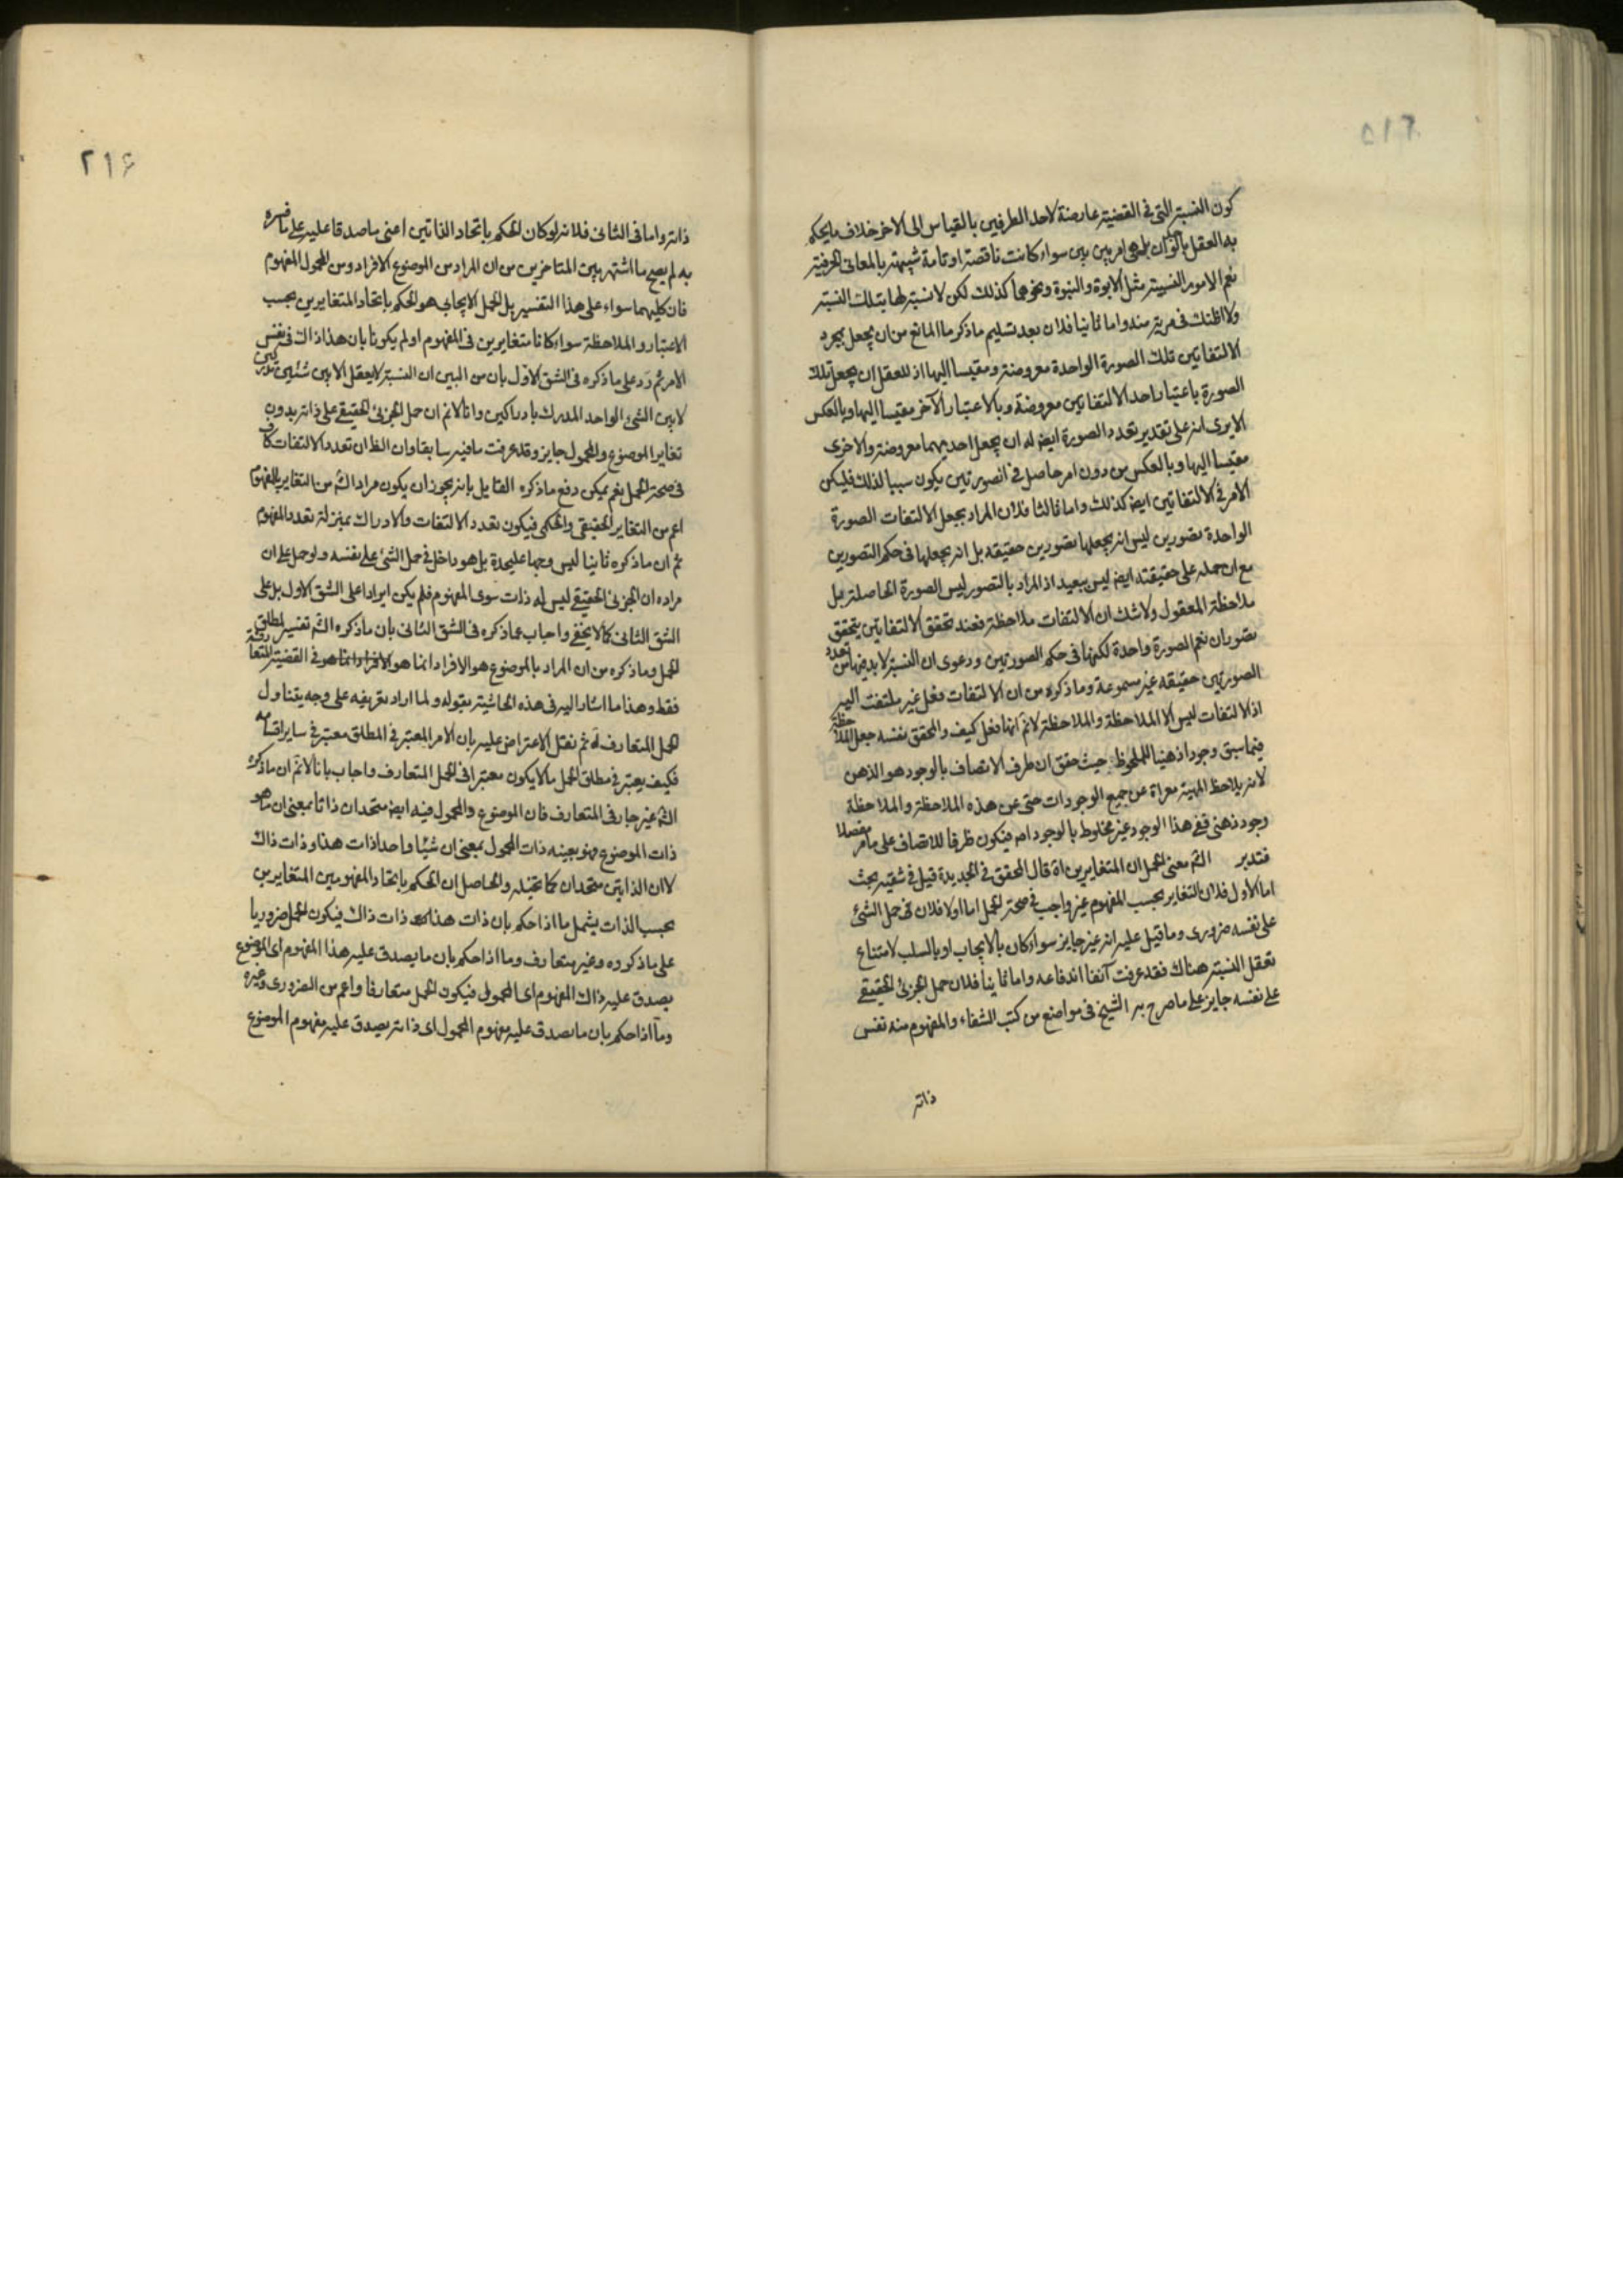 ٢١٥
كون النسبة التى فى القضية عارضة لاحد الطرفين بالقياس الى الاخر خلاف ما يحكم
به العقل بل هى امر بين بين سواء كانت ناقصة او تامة شبيهة بالمعانى الحرفية
نعم الامور النسبية مثل الابوة والبنوة ونحوهما كذلك لكن لا نسبة لها بتلك النسبة
ولا اظنك فى مرية منه واما ثانيا فلان بعد تسليم ما ذكر ما المانع من ان يجعل بمجرد
الالتفاتين تلك الصورة الواحدة معروضة ومقيسا اليها اذ للعقل ان يجعل تلك
الصورة باعتبار احد الالتفاتين معروضة وبالاعتبار الآخر مقيسا اليها وبالعكس
الا يرى انه على تقدير تعدد الصورة ايض له ان يجعل احديهما معروضة والاخرى
مقيسا اليها وبالعكس من دون امر حاصل فى الصورتين يكون سببا لذلك فليكن
الامر فى الالتفاتين ايض كذلك واما ثالثا فلان المراد بجعل الالتفات الصورة
الواحدة تصورين ليس انه يجعلها تصورين حقيقه بل انه يجعلها فى حكم التصورين
مع ان حمله على حقيقته ايض ليس ببعيد اذ المراد بالتصور ليس الصورة الحاصلة بل
ملاحظة المعقول ولا شك ان الالتفات ملاحظة فعند تحقق الالتفاتين يتحقق
تصوران نعم الصورة واحدة لكنها فى حكم الصورتين ودعوى ان النسبة لا بد فيها من تعدد
الصورتين حقيقه غير مسموعة وما ذكره من ان الالتفات فعل غير ملتفت اليه
اذ الالتفات ليس الا الملاحظة والملاحظة لانم انها فعل كيف والمحقق نفسه جعل الملاحظة
فيما سبق وجودا ذهنيا للملحوظ حيث حقق ان ظرف الاتصاف بالوجود هو الذهن
لانه يلاحظ المهية معراة عن جميع الوجودات حتى عن هذه الملاحظة والملاحظة
وجود ذهنى ففى هذا الوجود غير مخلوط بالوجود اص فيكون ظرفا للاتصاف على ما مر مفصلا
فتدبر الثم معنى الحمل ان المتغايرين اة قال المحقق فى الجديدة قيل فى شقيه بحث
اما الاول فلان التغاير بحسب المفهوم غير واجب فى صحة الحمل اما اولا فلان فى حمل الشئ
على نفسه ضرورى وما قيل عليه انه غير جايز سواء كان بالايجاب او بالسلب لامتناع
تعقل النسبة هناك فقد عرفت آنفا اندفاعه واما ثانيا فلان حمل الجزئى الحقيقى
على نفسه جايز على ما صرح به الشيخ فى مواضع من كتب الشفاء والمفهوم منه نفس
ذاته
٢١۶
ذاته واما فى الثانى فلانه لو كان الحكم باتحاد الذاتين اعنى ما صدقا عليه على ما فسره
به لم يصح ما اشتهر بين المتاخرين من ان المراد من الموضوع الافراد ومن المحمول المفهوم
فان كليهما سواء على هذا التفسير بل الحمل الايجابى هو الحكم باتحاد المتغايرين بحسب
الاعتبار والملاحظة سواء كانا متغايرين فى المفهوم او لم يكونا بان هذا ذاك فى نفس
الامر ثم رَد على ما ذكره فى الشق الاول بان من البين ان النسبة لا يعقل الا بين شيئين
لا بين الشئ الواحد المدرك بادراكين وانا لانم ان حمل الجزئى الحقيقى على ذاته بدون
تغاير الموضوع والمحمول جايز وقد عرفت ما فيه سابقا وان الظ ان تعدد الالتفات كاف
فى صحة الحمل نعم يمكن دفع ما ذكره القايل بانه يجوز ان يكون مراد الشم من التغاير بالمفهوم
اعم من التغاير الحقيقى والحكمى فيكون تعدد الالتفات والادراك بمنزلة تعدد المفهوم
ثم ان ما ذكره ثانيا ليس وجها عليحدة بل هو داخل فى حمل الشئ على نفسه ولو حمل على ان
مراده ان الجزئى الحقيقى ليس له ذات سوى المفهوم فلم يكن ايرادا على الشق الاول بل على
الشق الثانى كما لا يخفى واجاب عما ذكره فى الشق الثانى بان ما ذكره الشم تفسير لمطلق
الحمل وما ذكره من ان المراد بالموضوع هو الافراد انما هو الافراد انما هو فى القضية المتعارفة
فقط وهذا ما اشار اليه فى هذه الحاشية بقوله ولما اراد تعريفه على وجه يتناول
الحمل المتعارف اة ثم نقل الاعتراض عليه بان الامر المعتبر فى المطلق معتبر فى ساير اقسامه
فكيف يعتبر فى مطلق الحمل ما لا يكون معتبرا فى الحمل المتعارف واجاب بانا لانم ان ما ذكره
الشم غير جار فى المتعارف فان الموضوع والمحمول فيه ايض متحدان ذاتا بمعنى ان ما هو
ذات الموضوع فهو بعينه ذات المحمول بمعنى ان شيئا واحدا ذات هذا وذات ذاك
لا ان الذاتين متحدان كما تخيله والحاصل ان الحكم باتحاد المفهومين المتغايرين
بحسب الذات يشمل ما اذا حكم بان ذات هذا ذات ذاك فيكون الحمل ضروريا
على ما ذكروه وغير متعارف وما اذا حكم بان ما يصدق عليه هذا المفهوم اى الموضوع
يصدق عليه ذاك المفهوم اى المحمول فيكون الحمل متعارفا واعم من الضرورى وغيره
وما اذا حكم بان ما يصدق عليه مفهوم المحمول اى ذاته يصدق عليه مفهوم الموضوع